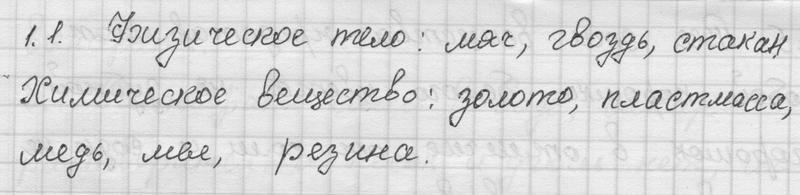 1.1. Физическое тело: мяч, гвоздь, стакан
Химическое вещество: золото, пластмасса,
медь, мел, резина.